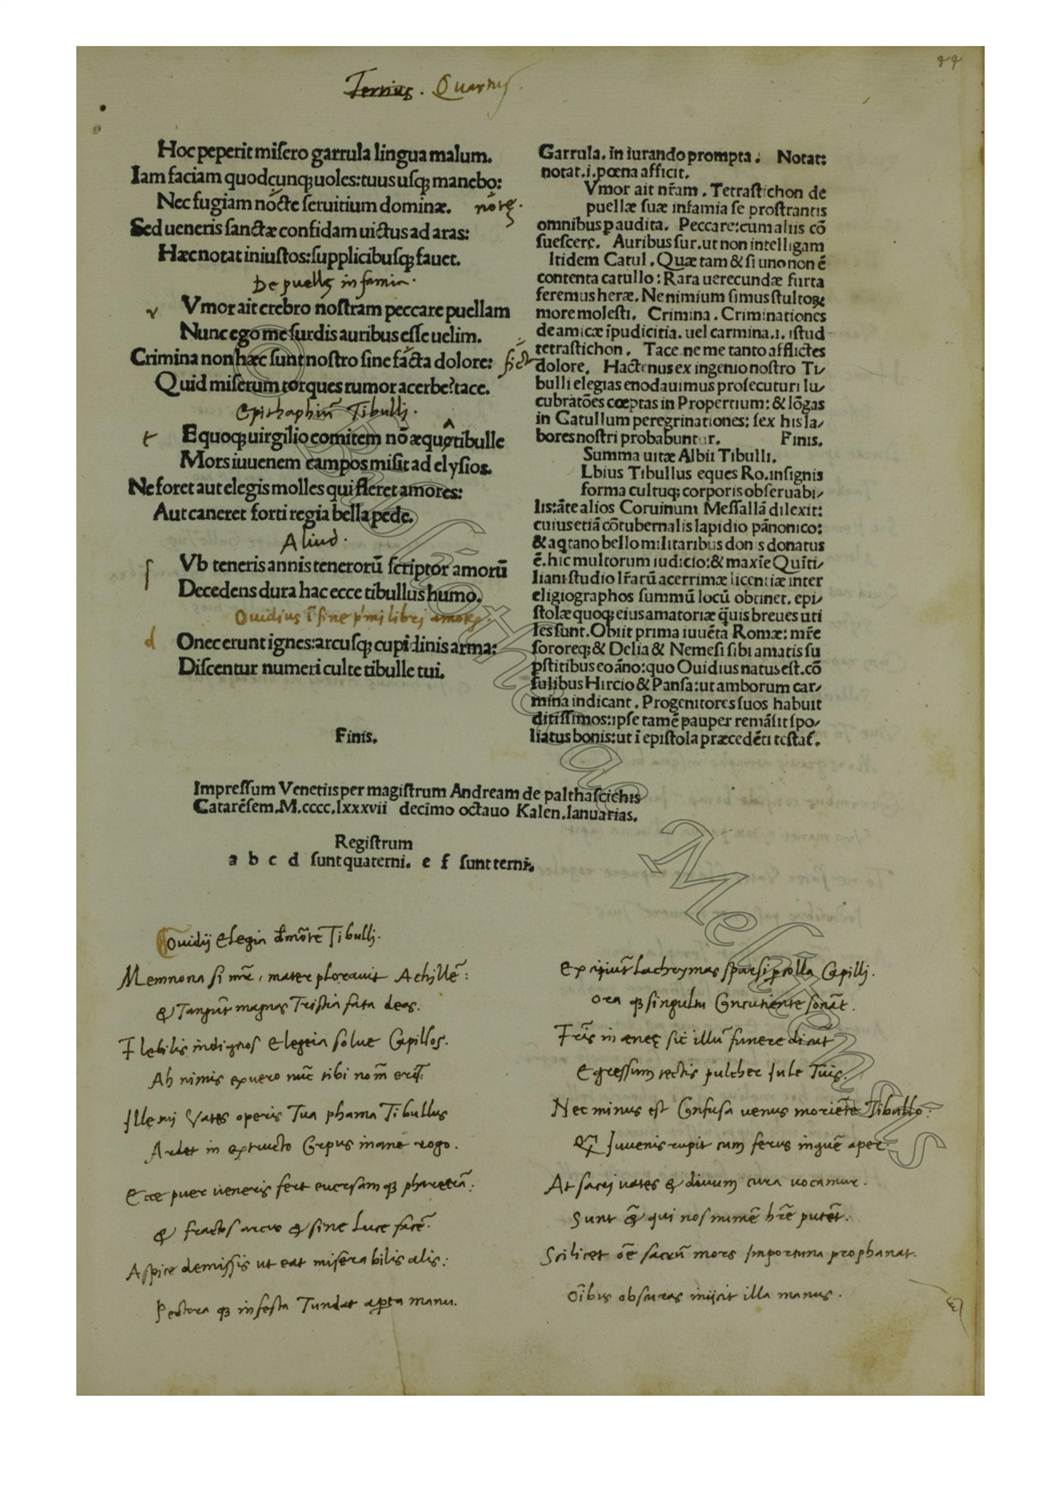 44
Ternius. Quartus
Hoc peperit misero garrula lingua malum.
Iam faciam quodcunq; uoles: tuus usq; manebo:
Nec fugiam nocte seruitium dominæ. note.
Sed ueneris sanctæ confidam uictus ad aras:
Hæc notat iniustos: supplicibusq; fauet.
De puellę infamia.
r Vmor ait crebro nostram peccare puellam
Nunc ego me surdis auribus esse uelim.
Crimina non hæc sunt nostro sine facta dolore:
Quid miserum torques rumor acerbe? tace.
Epithaphiũ Tibulli.
t E quoq; uirgilio comitem nõ æqua tibulle
Mors iuuenem campos misit ad elysios.
Ne foret aut elegis molles qui fleret amores:
Aut caneret forti regia bella pede.
Aliud.
s Vb teneris annis tenerorũ scriptor amorũ
Decedens dura hac ecce tibullus humo.
Ouidius ĩ fine p'mi libri amorũ.
d Onec erunt ignes: arcusq; cupidinis arma:
Discentur numeri culte tibulle tui.
Finis.
Garrula. in iurando prompta. Notat:
notat .i. pœna afficit.
Vmor ait nr̃am. Tetrastichon de
puellæ suæ infamia se prostrantis
omnibus paudita. Peccare: cum aliis cõ
suescere. Auribus sur. ut non intelligam
Itidem Catul. Quæ tam & si uno non ẽ
contenta catullo: Rara uerecundæ furta
feremus heræ. Ne nimium simus stultoꝝ
more molesti. Crimina. Criminationes
de amicæ ĩpudicitia. uel carmina .i. istud
tetrastichon. Tace. ne me tanto afflictes
dolore. Hactenus ex ingenio nostro Ti/
bulli elegias enodauimus prosecuturi lu/
cubratões cœptas in Propertium: & lõgas
in Catullum peregrinationes: sex his la/
bores nostri probabuntur. Finis.
Summa uitæ Albii Tibulli.
Lbius Tibullus eques Ro. insignis
forma cultuq; corporis obseruabi/
lis: ãte alios Coruinum Messallã dilexit:
cuius etiã cõtubernalis lapidio pãnonico:
& aqtano bello militaribus donis donatus
ẽ. hic multorum iudicio: & maxĩe Quĩti/
liani studio lr̃arũ acerrimæ licentiæ inter
eligiographos summũ locũ obtinet. epi/
stolæ quoq; eius amatoriæ q̃uis breues uti
les sunt. Obiit prima iuuẽta Romæ: mr̃e
sororeq; & Delia & Nemesi sibi amatis su
pstitibus eo ãno: quo Ouidius natus est. cõ
sulibus Hircio & Pansa: ut amborum car/
mina indicant. Progenitores suos habuit
ditissimos: ipse tamẽ pauper remãsit spo/
liatus bonis: ut ĩ epistola præcedẽti testat̃.
Impressum Venetiis per magistrum Andream de palthascichis
Catarẽsem. M.cccc.lxxxvii decimo octauo Kalen. Ianuarias.
Registrum
a b c d sunt quaterni. e f sunt terni.
Ouidij Elegia d̃ morte Tibulli.
Memnona si mr̃, mater plorauit Achillẽ:
& Tangũt magnas Tristia fata deas.
Flebilis indignos Elegeia solue Capillos.
Ah nimis ex uero nũc tibi nom̃ erit.
Ille tui Vates operis Tua phama Tibullus
Ardet in extructo Corpus inane rogo.
Ecce puer ueneris fert euersam q; pharetrã:
& fractos arcus & sine Luce facẽ.
Aspice demissis ut eat miserabilis alis:
Pectora q; infesta Tundat apta manu.
Excipiũt Lachrymas sparsi p colla Capilli.
ora q; singultu Concutiente sonãt.
Fr̃is in ænee sic illũ funere dicũt
Egressum tectis pulcher Iule Tuis.
Nec minus est Confusa uenus moriẽte Tibullo.
Iuuenis rupit cum ferus inguẽ aper.
At sacri uates & diuum cura uocamur.
Sunt & qui nos numẽ hr̃e putẽt.
Scilicet oẽ sacrũ mors Importuna prophanat.
Oĩbus obscuras inijcit illa manus.
Bibliothecae Mejanensis